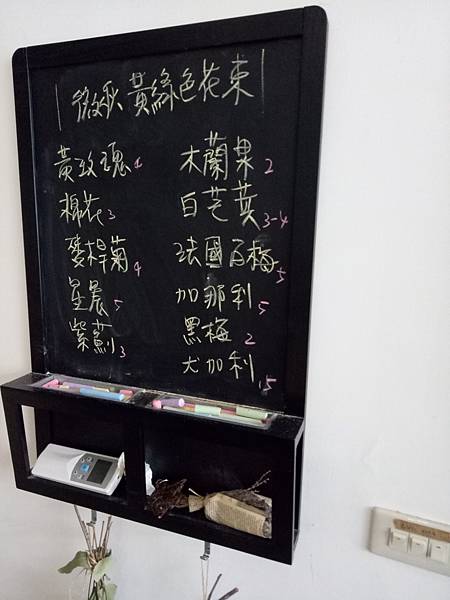 微秋 黃綠色花束
黃玫瑰 4
棉花 3
麥桿菊 4
星辰 5
紫薊 3
木蘭果 2
白芒萁 3-4
法國百梅 5
加那利 5
黑梅 2
尤加利 1.5